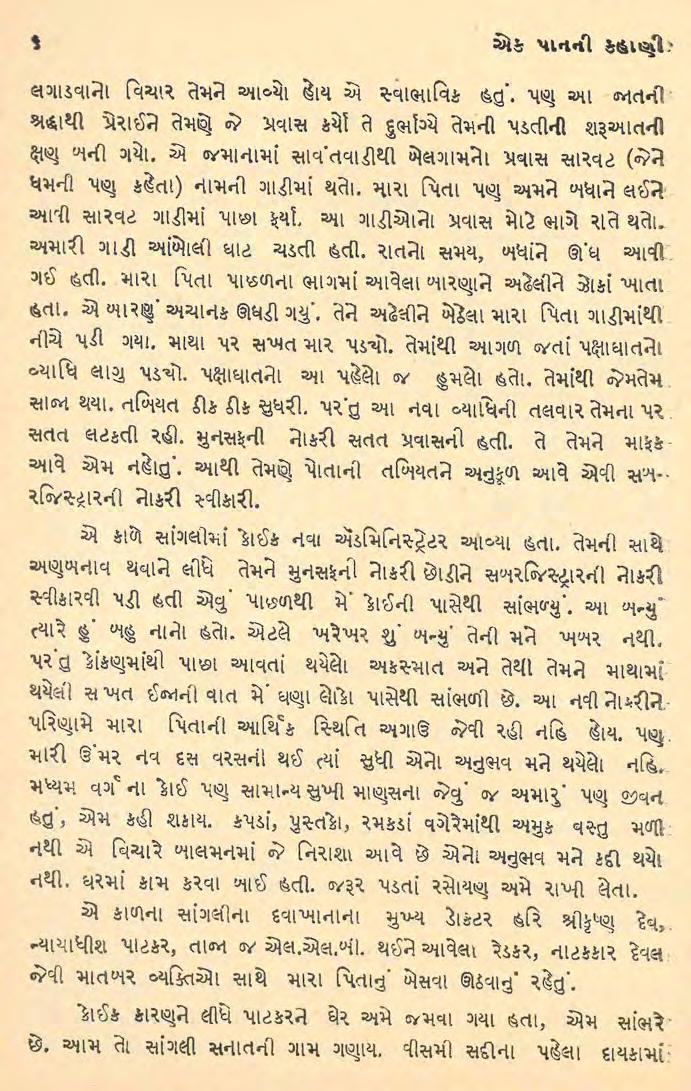 ૬ એક પાનની કહાણી
લગાડવાનો વિચાર તેમને આવ્યો હોય એ સ્વાભાવિક હતું. પણ આ જાતની
શ્રદ્ધાથી પ્રેરાઈને તેમણે જે પ્રવાસ કર્યો તે દુર્ભાગ્યે તેમની પડતીની શરૂઆતની
ક્ષણ બની ગયો. એ જમાનામાં સાવંતવાડીથી બેલગામનો પ્રવાસ સારવટ (જેને
ધમની પણ કહેતા) નામની ગાડીમાં થતો. મારા પિતા પણ અમને બધાને લઈને
આવી સારવટ ગાડીમાં પાછા ફર્યા. આ ગાડીઓનો પ્રવાસ મોટે ભાગે રાતે થતો.
અમારી ગાડી આંબોલી ઘાટ ચડતી હતી. રાતનો સમય, બધાંને ઊંઘ આવી
ગઈ હતી. મારા પિતા પાછળના ભાગમાં આવેલા બારણાને અઢેલીને ઝોકાં ખાતા
હતા. એ બારણું અચાનક ઊઘડી ગયું. તેને અઢેલીને બેઠેલા મારા પિતા ગાડીમાંથી
નીચે પડી ગયા. માથા પર સખત માર પડ્યો. તેમાંથી આગળ જતાં પક્ષાઘાતનો
વ્યાધિ લાગુ પડ્યો. પક્ષાઘાતનો આ પહેલો જ હુમલો હતો. તેમાંથી જેમતેમ
સાજા થયા. તબિયત ઠીક ઠીક સુધરી. પરંતુ આ નવા વ્યાધિની તલવાર તેમના પર
સતત લટકતી રહી. મુનસફની નોકરી સતત પ્રવાસની હતી. તે તેમને માફક
આવે એમ નહોતું. આથી તેમણે પોતાની તબિયતને અનુકૂળ આવે એવી સબ-
રજિસ્ટ્રારની નોકરી સ્વીકારી.
એ કાળે સાંગલીમાં કોઈક નવા ઍડમિનિસ્ટ્રેટર આવ્યા હતા. તેમની સાથે
અણબનાવ થવાને લીધે તેમને મુનસફની નોકરી છોડીને સબરજિસ્ટ્રારની નોકરી
સ્વીકારવી પડી હતી એવું પાછળથી મેં કોઈની પાસેથી સાંભળ્યું. આ બન્યું
ત્યારે હું બહુ નાનો હતો. એટલે ખરેખર શું બન્યું તેની મને ખબર નથી.
પરંતુ કોંકણમાંથી પાછા આવતાં થયેલો અકસ્માત અને તેથી તેમને માથામાં
થયેલી સખત ઈજાની વાત મેં ઘણા લોકો પાસેથી સાંભળી છે. આ નવી નોકરીને
પરિણામે મારા પિતાની આર્થિક સ્થિતિ અગાઉ જેવી રહી નહિ હોય. પણ
મારી ઉંમર નવ દસ વરસની થઈ ત્યાં સુધી એનો અનુભવ મને થયેલો નહિ.
મધ્યમ વર્ગના કોઈ પણ સામાન્ય સુખી માણસના જેવું જ અમારું પણ જીવન
હતું, એમ કહી શકાય. કપડાં, પુસ્તકો, રમકડાં વગેરેમાંથી અમુક વસ્તુ મળી
નથી એ વિચારે બાલમનમાં જે નિરાશા આવે છે એનો અનુભવ મને કદી થયો
નથી. ઘરમાં કામ કરવા બાઈ હતી. જરૂર પડતાં રસોયણ અમે રાખી લેતા.
એ કાળના સાંગલીના દવાખાનાના મુખ્ય ડોક્ટર હરિ શ્રીકૃષ્ણ દેવ,
ન્યાયાધીશ પાટકર, તાજા જ એલ.એલ.બી. થઈને આવેલા રેડકર, નાટકકાર દેવલ
જેવી માતબર વ્યક્તિઓ સાથે મારા પિતાનું બેસવા ઊઠવાનું રહેતું.
કોઈક કારણને લીધે પાટકરને ઘેર અમે જમવા ગયા હતા, એમ સાંભરે
છે. આમ તો સાંગલી સનાતની ગામ ગણાય. વીસમી સદીના પહેલા દાયકામાં